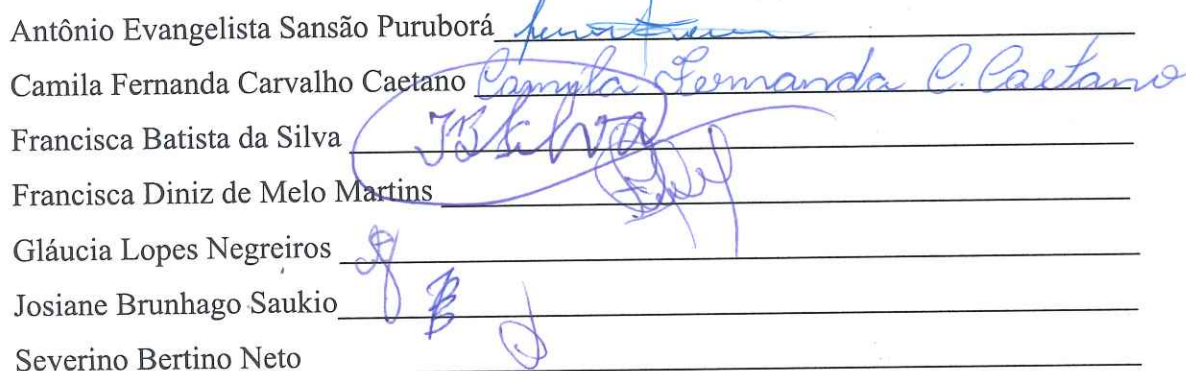 Antônio Evangelista Sansão Puruborá
Camila Fernanda Carvalho Caetano Camila Fernanda C. Caetano
Francisca Batista da Silva FBSilva
Francisca Diniz de Melo Martins
Gláucia Lopes Negreiros
Josiane Brunhago Saukio
Severino Bertino Neto